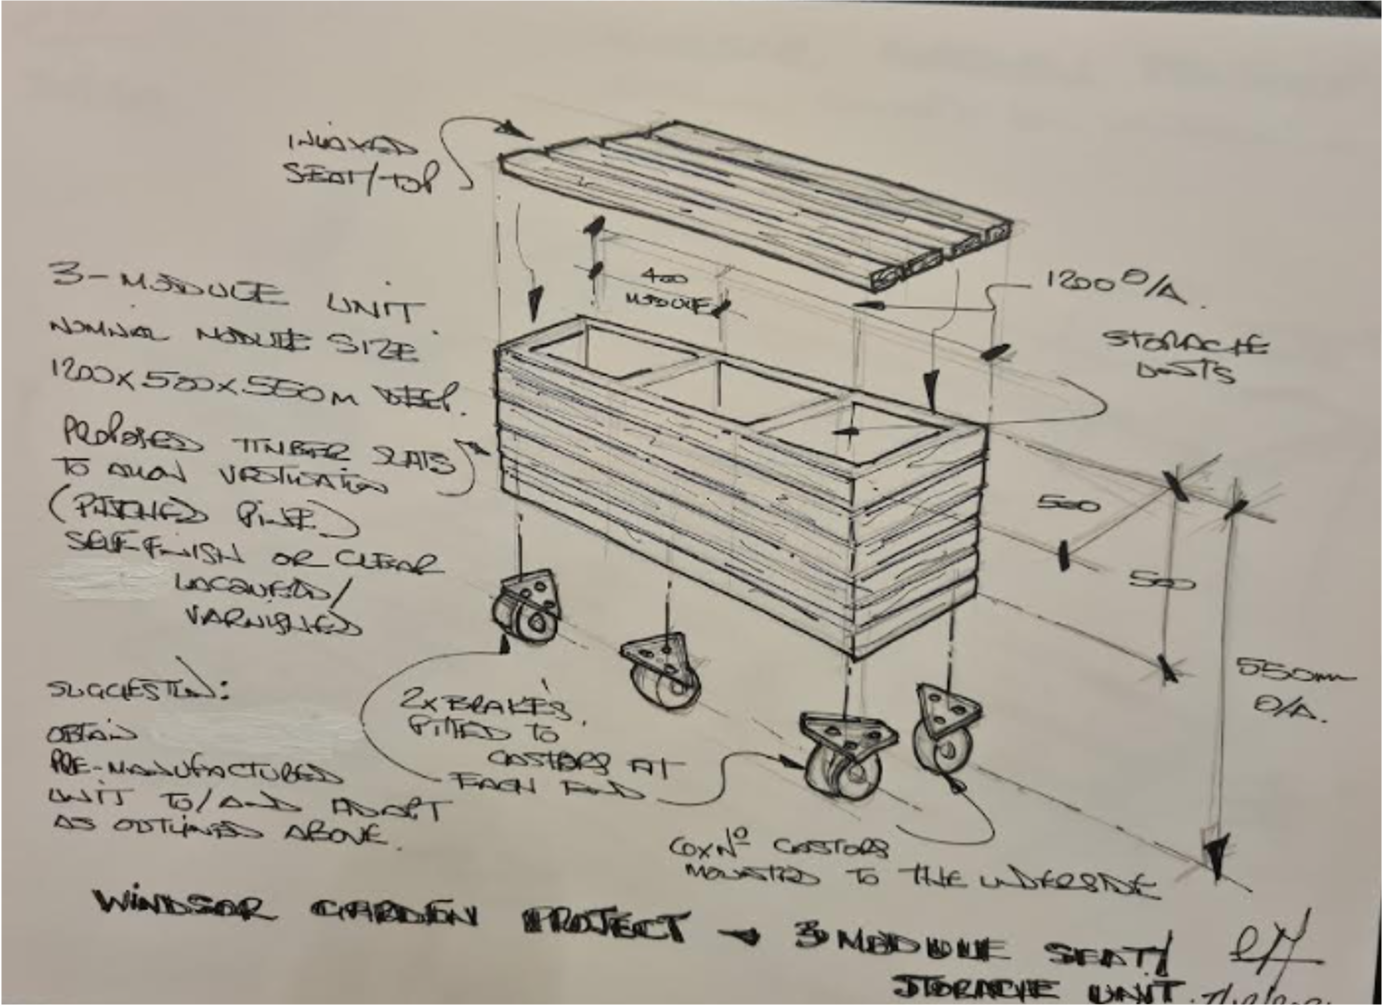 INLAXED
SEAT/TOP
400
MODULE
1200 O/A.
STORAGE
3-MODULE UNIT.
NOMINAL MODULE SIZE
1200x500x550M DEEP.
PROPOSED TIMBER SLATS
TO ALLOW VENTILATION
(PITCHED PINE)
SELF FINISH OR CLEAR
LACQUERED/
VARNISHED
500
500
550mm
O/A.
SUGGESTION:
OBTAIN
PRE-MANUFACTURED
UNIT TO/AND ADAPT
AS OUTLINED ABOVE.
2x BRAKES
FITTED TO
CASTORS AT
EACH END
6xNº CASTORS
MOUNTED TO THE UNDERSIDE
WINDSOR GARDEN PROJECT → 3 MODULE SEAT/
STORAGE UNIT.